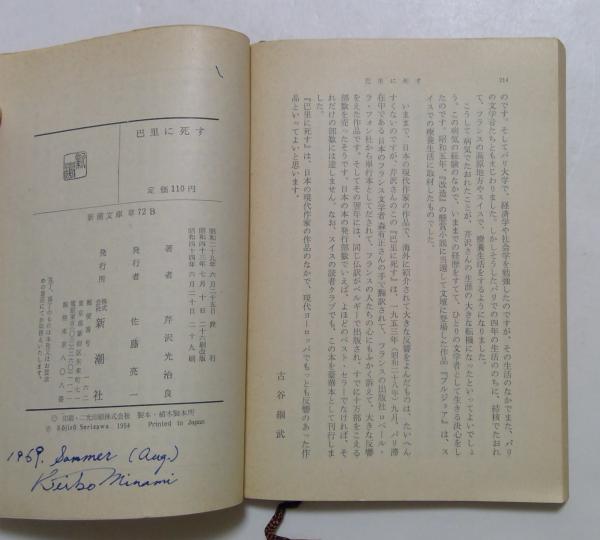 214
巴里に死す
のです。そしてパリ大学で、経済学や社会学を勉強したのですが、その生活のなかでまた、パリ
の文学者たちともまじわりました。しかしそうしたパリでの四年の生活ののちに、結核でたおれ
て、フランスの高原地方やスイスで、療養生活をするようになりました。
こうして病気でたおれたことが、芹沢さんの生涯の大きな転機になったといってよいでしょ
う。この病気の経験のなかで、いままでの経歴をすてて、ひとりの文学者として生きる決心をし
たのです。昭和五年、『改造』の懸賞小説に当選して文壇に登場した作品『ブルジョア』は、ス
イスでの療養生活に取材したものでした。
いままで、日本の現代作家の作品で、海外に紹介されて大きな反響をよんだものは、たいへん
すくないのですが、芹沢さんのこの『巴里に死す』は、一九五三年(昭和二十八年)九月、パリ滞
在中である日本のフランス文学者森有正さんの手で翻訳されて、フランスの出版社ロベール・
ラフォン社から単行本としてだされて、フランスの人たちの心にもふかく訴えて、大きな反響
をえた作品です。そしてその翌年には、同じ仏訳がベルギーで出版され、すでに十万部をこえる
部数を売ったそうです。日本の本の発行部数でいえば、よほどのベスト・セラーでなければ、そ
れだけの部数には達しません。なお、スイスの読者クラブでも、この本を豪華本として刊行しま
した。
『巴里に死す』は、日本の現代作家の作品のなかで、現代ヨーロッパでもっとも反響のあった作
品といってよいと思います。
古谷綱武
巴里に死す
定価110円
新潮文庫 草72B
昭和二十九年六月二十五日発行
昭和四十三年七月十日二十六刷改版
昭和四十四年六月二十日二十八刷
著者 芹沢光治良
発行者 佐藤亮一
発行所 株式会社 新潮社
郵便番号 一六二
東京都新宿区矢来町七一
振替東京八〇八番
乱丁・落丁のものは本社又はお買求
めの書店にてお取替えいたします。
© 印刷・二光印刷株式会社 製本・植木製本所
Kôjirô Serizawa 1954 Printed in Japan
1969. Sommer (Aug.)
Keiko Minami